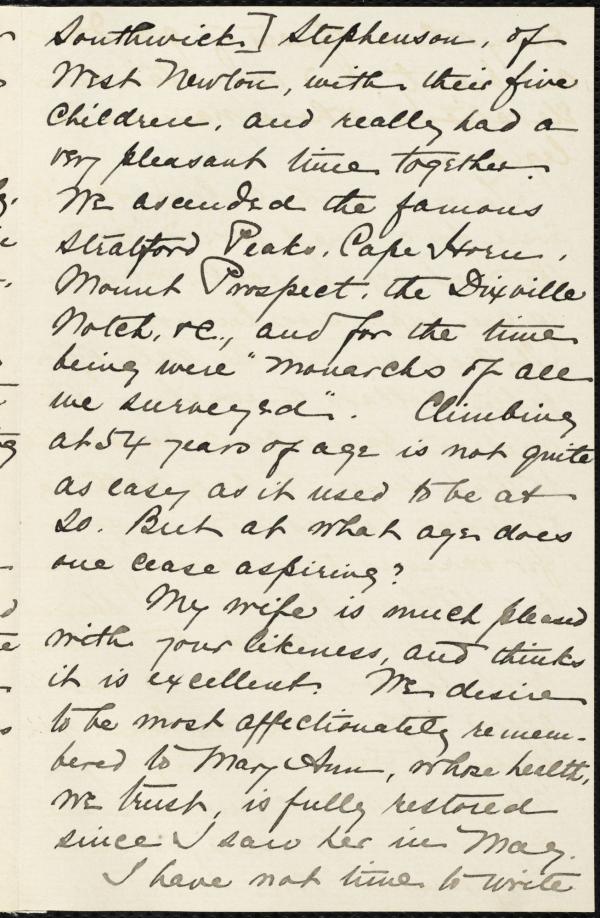 Southwick] Stephenson, of
West Newton, with their five
children, and really had a
very pleasant time together.
We ascended the famous
Stratford Peaks, Cape Horn,
Mount Prospect, the Dixville
Notch, &c., and for the time
being were "monarchs of all
we surveyed". Climbing
at 54 years of age is not quite
as easy as it used to be at
20. But at what age does
one cease aspiring?
My wife is much pleased
with your likeness, and thinks
it is excellent. We desire
to be most affectionately remem-
bered to Mary Ann, whose health,
we trust, is fully restored
since I saw her in May.
I have not time to write